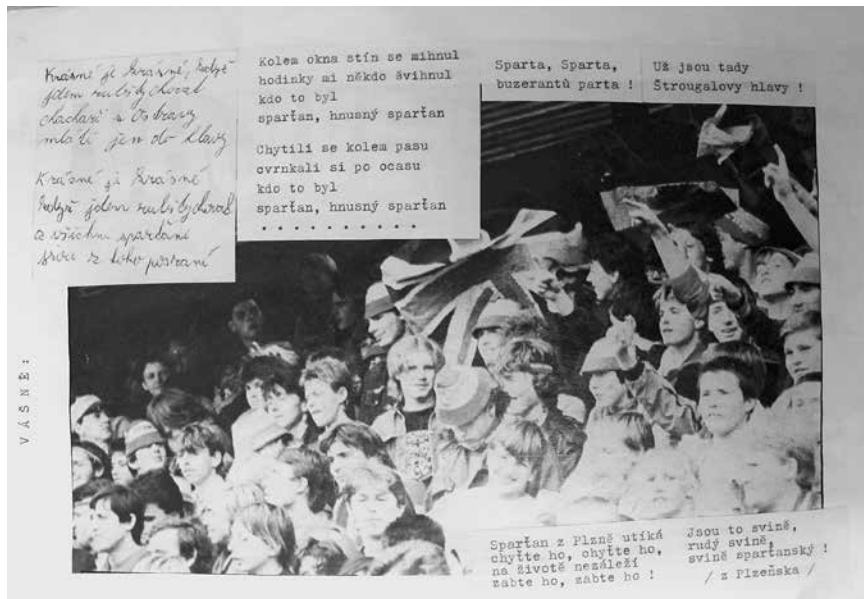 Krásné je krásné, když
jdem
chachaři z Ostravy
mlátí jen do hlavy
Krásné je krásné
když jdem
a všichni sparťané
z toho
Kolem okna stín se mihnul
hodinky mi někdo švihnul
kdo to byl
sparťan, hnusný sparťan
Chytili se kolem pasu
cvrnkali si po ocasu
kdo to byl
sparťan, hnusný sparťan
. . . . . . . . . .
Sparta, Sparta,
buzerantů parta !
Už jsou tady
Štrougalovy hlavy !
VÁSNE:
Sparťan z Plzně utíká
chyťte ho, chyťte ho,
na životě nezáleží
zabte ho, zabte ho !
Jsou to svině,
rudý svině,
svině sparťanský !
/ z Plzeňska /